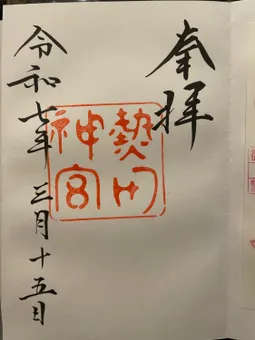 奉拝
熱田神宮
令和七年三月十五日